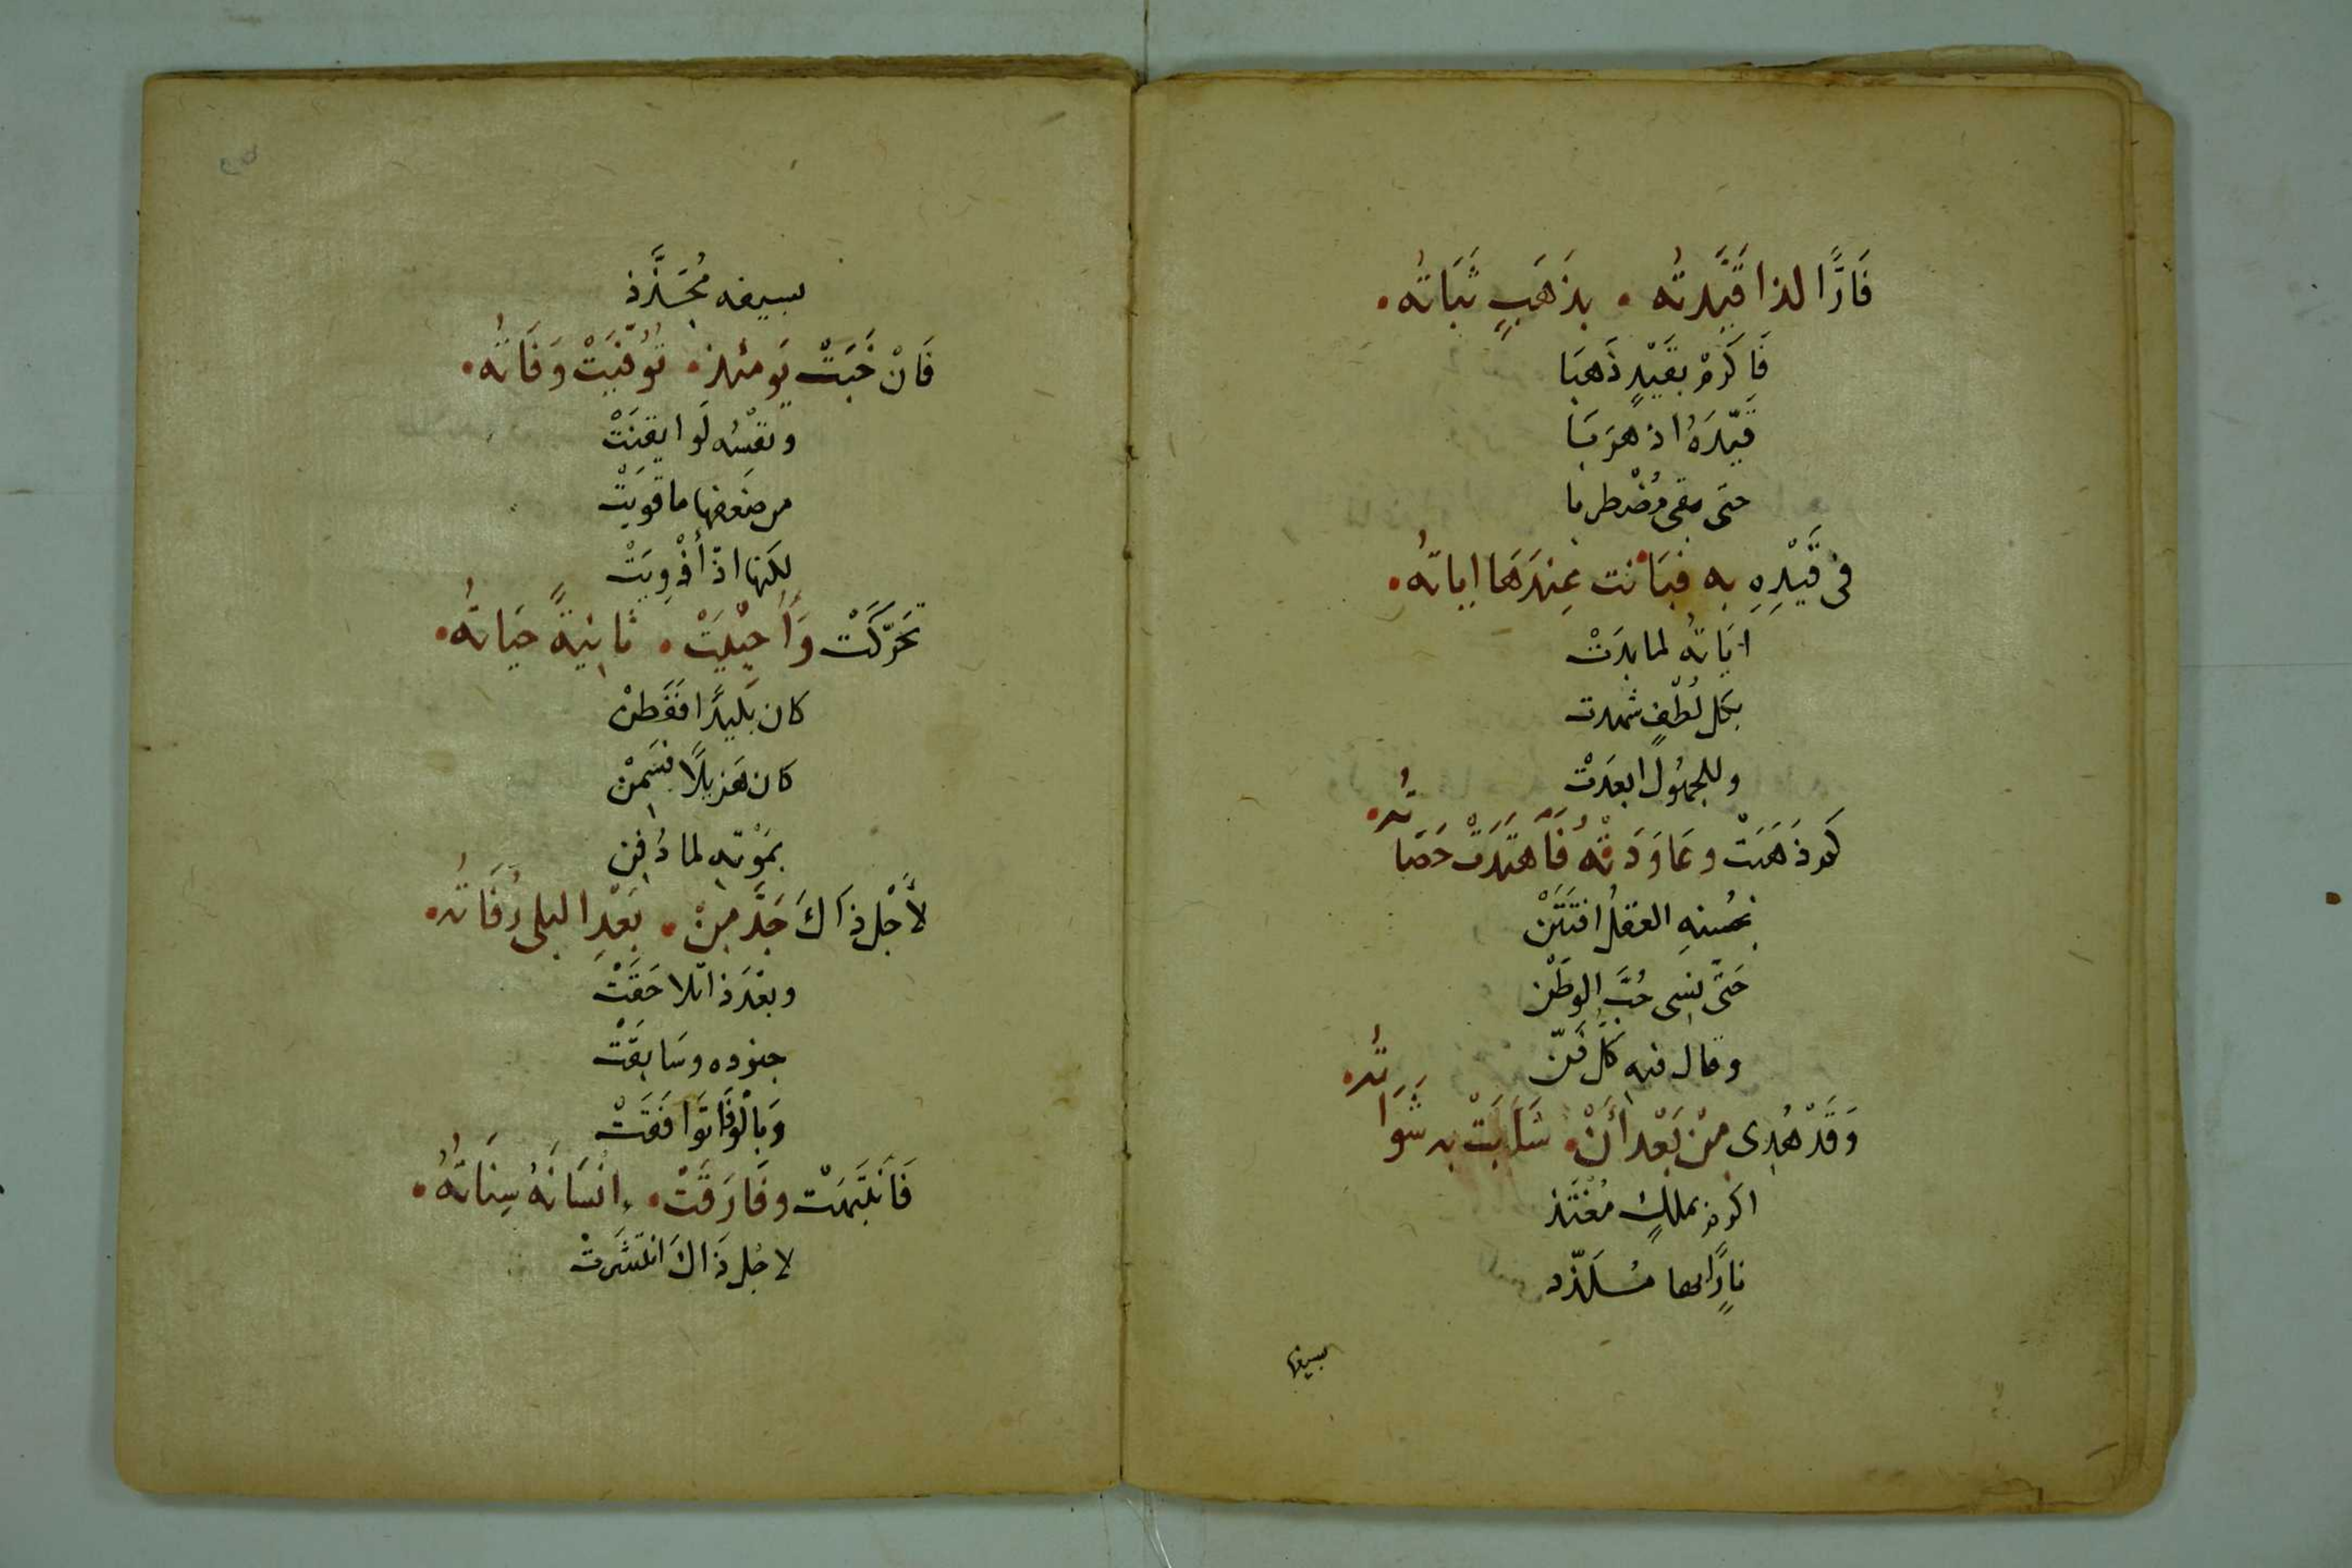 فَارًّا لذا قَيَّدتُه • بِذَهَبٍ ثَبَاتُه •
فَاكرِمْ بقَيْدٍ ذَهَبَا
قَيَّدَهُ اذ هَرَبَا
حتى بقى مُضْطربا
فى قَيْدِهِ به فبَانت عِندَهَا اياتُه •
اياتُه لما بدَتْ
بكل لُطْفٍ شهدت
وللجهُول ابعَدتْ
كم ذَهَبَتْ وعَاوَدَتْه فَاهتَدَت حَصَاتُه •
بحُسنهِ العقلُ افتَتَنْ
حَتّى نسى حُبَّ الوطَنْ
وقال فيه كلَّ فَنّ
وَقَدْ هُدِى مِنْ بَعْد أَنْ • سَلَبَتْ به شَوَاتُه •
اكرم بملكٍ مُغْتَذ
نارًا بها مُسْلَذّذ
بسيفه
بسيفه مُجَذَّذ
فَانْ خَبَتْ يَومئذ • تُوُفّيَتْ وَفَاتُه •
ونفسُه لَو ايقنَتْ
من ضَعفها ما قويَتْ
لكنها اذ أُذْوِيَتْ
تَحَرَّكَتْ وَأُحْيِيَتْ • ثانِيَةً حَيَاتُه •
كان بَلِيدًا فَفَطنْ
كان هَزيلًا فسَمِنْ
بمَوْته لما دُفِن
لأَجْل ذَاكَ جَدَّ مِنْ • بَعْدِ البلى رُفَاتُه •
وبعْدَ ذا تلاحَقَتْ
جنوده وسَابقَتْ
وَبالْوفَا توَافَقَتْ
فَانْتَبَهَتْ وفَارَقَتْ • انْسَانَهُ سِنَاتُهُ •
لاجل ذَاكَ انتشَرتْ